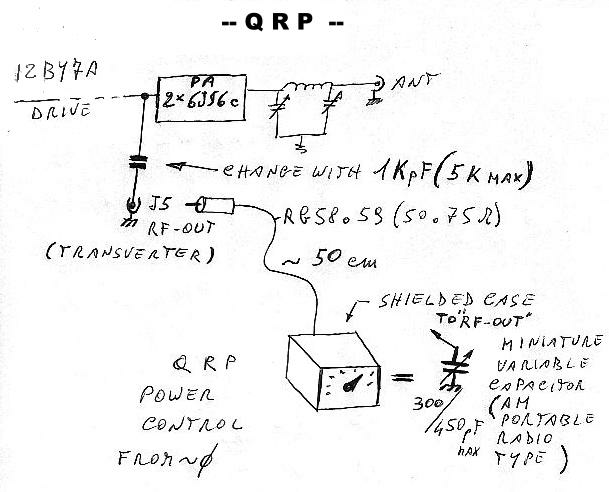 -- QRP --
12BY7A
DRIVE
PA
2×6JS6C
ANT
CHANGE WITH 1KpF (5K MAX)
J5
RF-OUT
(TRANSVERTER)
RG58.59 (50.75Ω)
~ 50 cm
SHIELDED CASE
TO "RF-OUT"
QRP
POWER
CONTROL
FROM ~ø
=
300
/450 pF
MAX
MINIATURE
VARIABLE
CAPACITOR
(AM
PORTABLE
RADIO
TYPE)